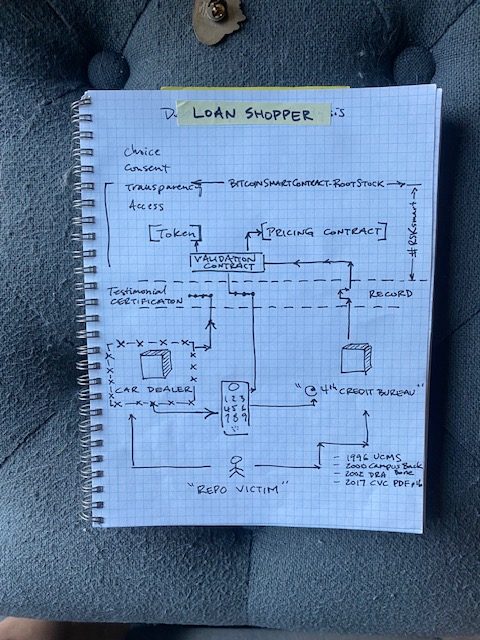 LOAN SHOPPER
Choice
Consent
Transparency
BITCOIN SMART CONTRACT - ROOTSTOCK
Access
#RSKsmart
[Token]
[PRICING CONTRACT]
VALIDATION
CONTRACT
Testimonial
CERTIFICATION
RECORD
CAR DEALER
1 2 3
4 5 6
7 8 9
"@ 4th CREDIT BUREAU"
"REPO VICTIM"
- 1996 UCMS
- 2000 Campus Back Bone
- 2002 DRA
- 2017 CVC PDF